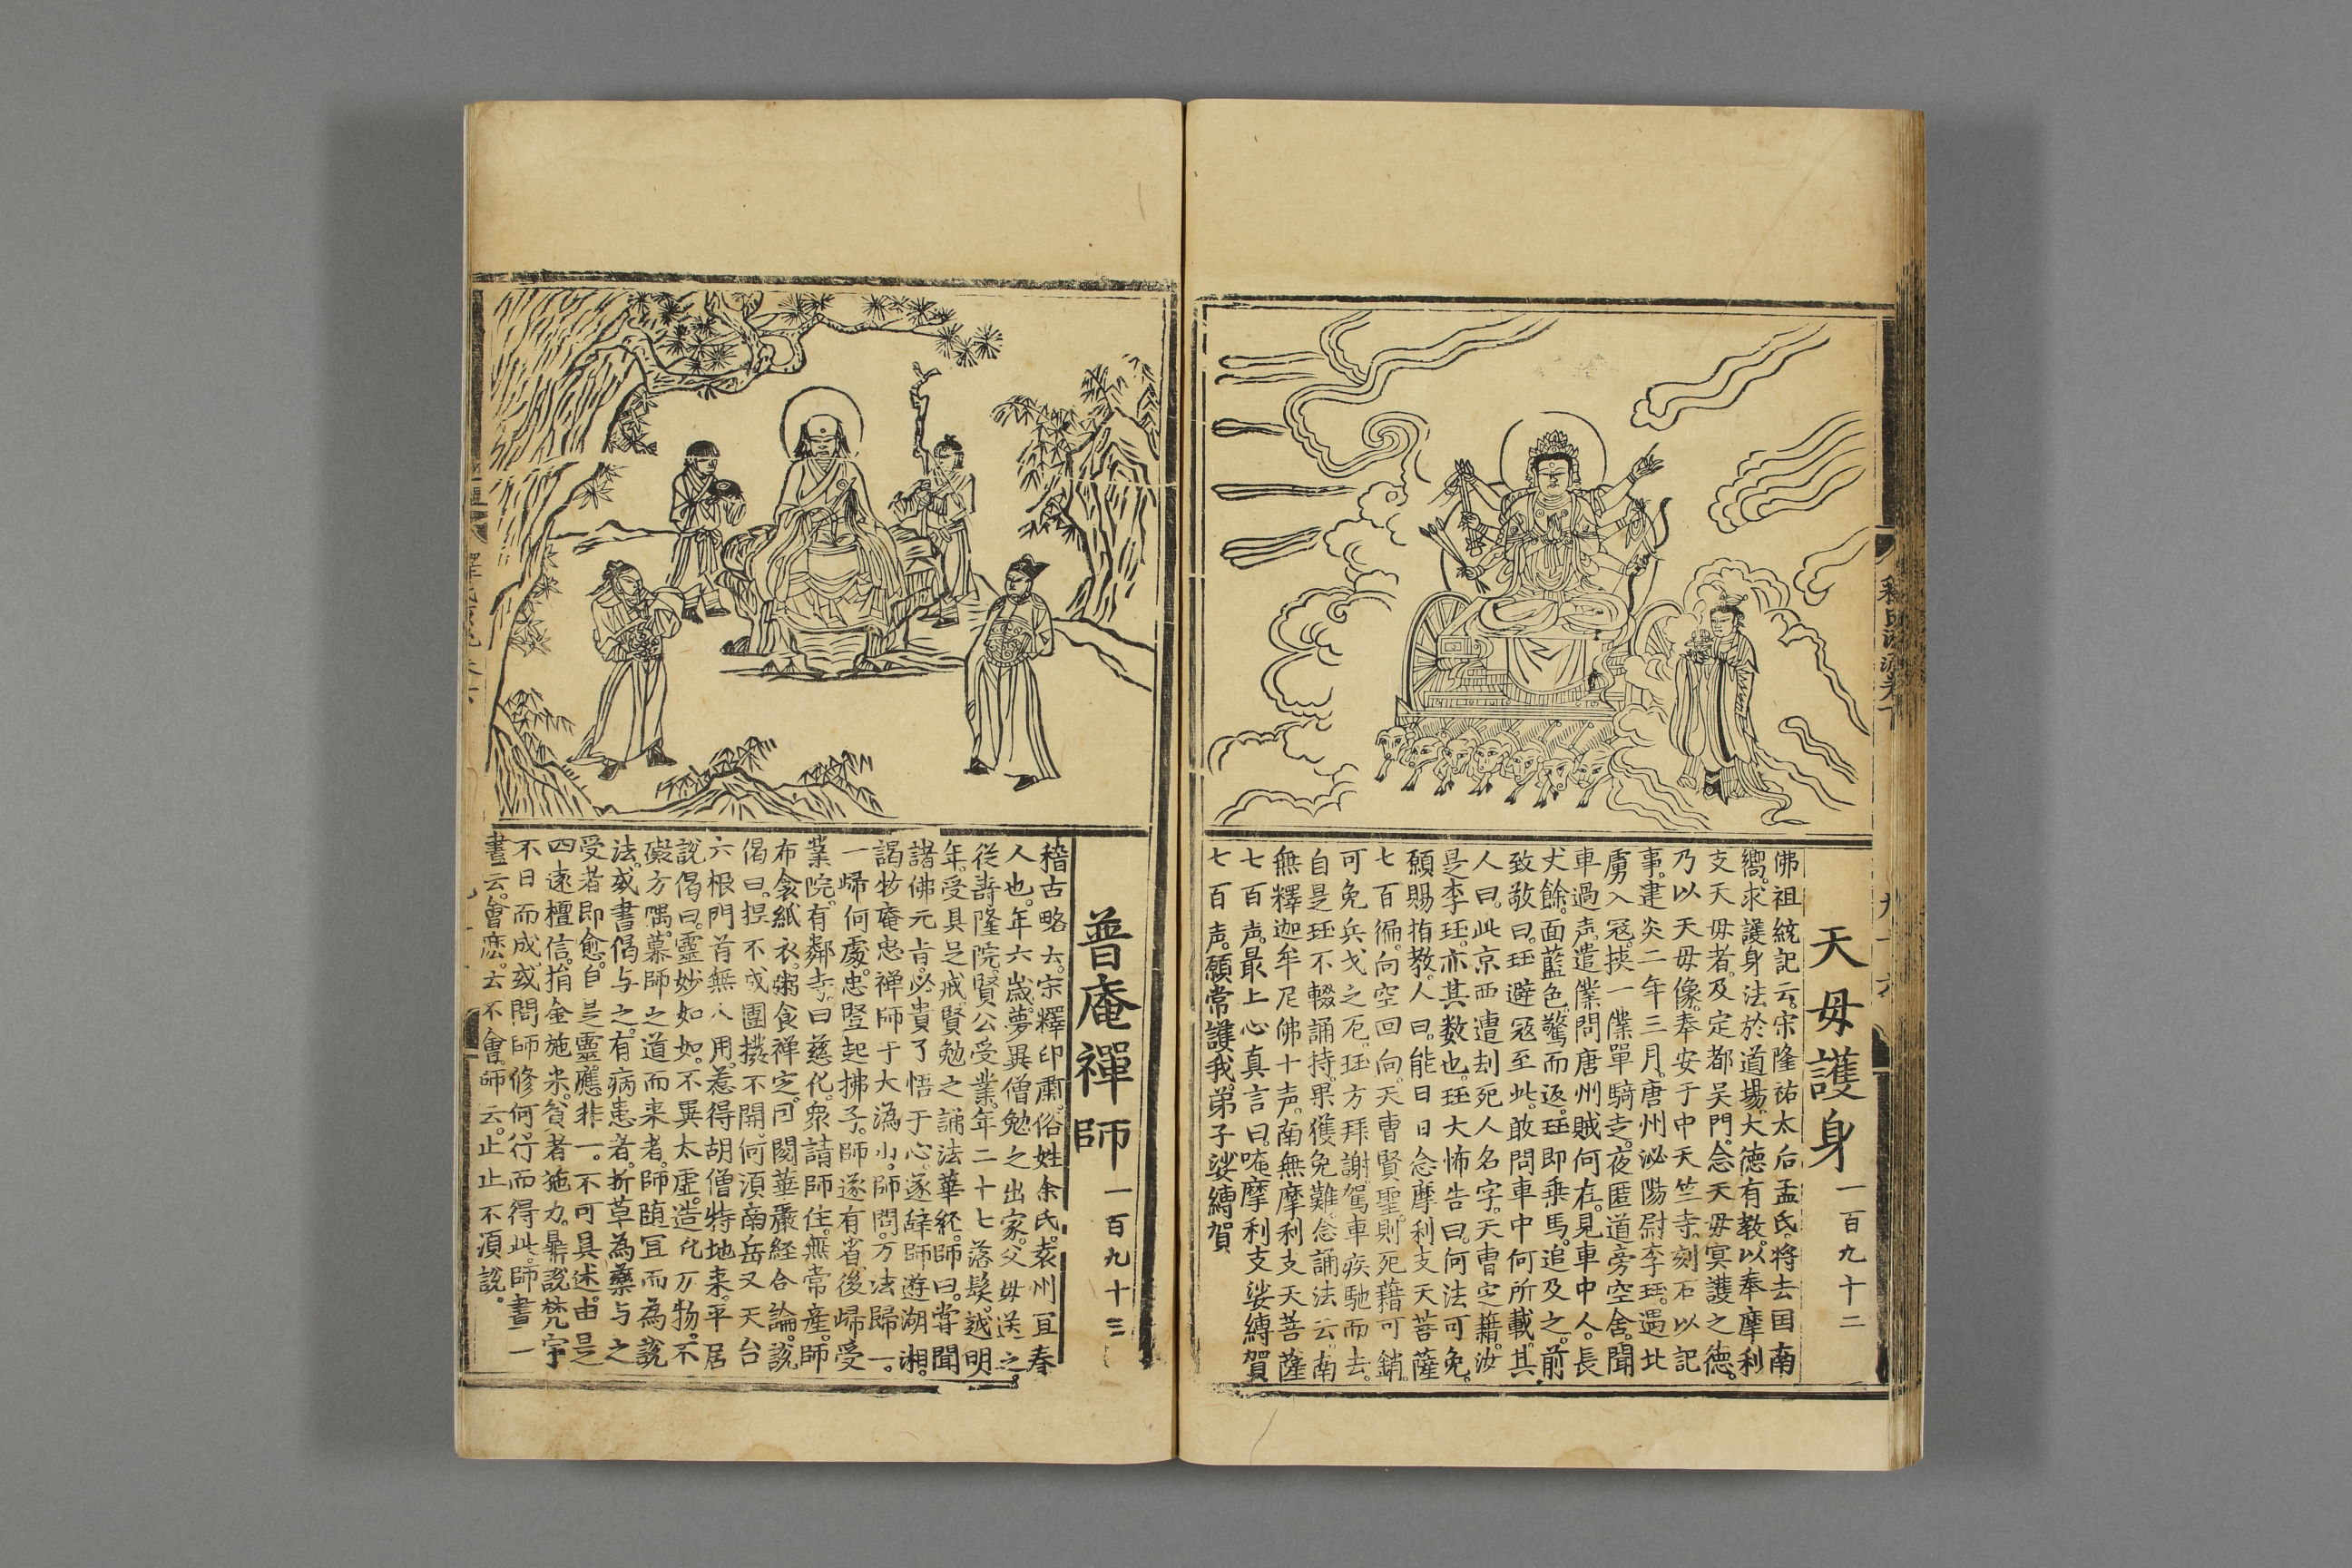 天母護身 一百九十二
佛祖統記云。宋隆祐太后孟氏。將去国南
嚮。求護身法於道場。大德有教。以奉摩利
支天母者。及定都吴門。念天母冥護之德。
乃以天母像。奉安于中天竺寺。刻石以記
事。建炎二年三月。唐州泌陽尉李珏。遇北
虜入冦。挾一僕單騎走。夜匿道旁空舍。聞
車過声。遣僕問唐州賊何在。見車中人。長
丈餘。面藍色。驚而返。珏即乗馬。追及之。前
致敬曰。珏避冦至此。敢問車中何所載。其
人曰。此京西遭刦死人名字。天曹定籍。汝
是李珏。亦其数也。珏大怖告曰。何法可免。
願賜指教。人曰。能日日念摩利支天菩薩
七百徧。向空回向。天曹賢聖。則死藉可銷。
可免兵戈之厄。珏方拜謝。駕車疾馳而去。
自是珏不輟誦持。果獲免難。念誦法云。南
無釋迦牟尼佛十声。南無摩利支天菩薩
七百声。最上心真言曰。唵摩利支娑縛賀
七百声。願常護我。弟子娑縛賀
普庵禪師 一百九十三
稽古略云。宋釋印肅。俗姓余氏。袁州宜春
人也。年六歳。夢異僧勉之出家。父母送之。
從壽隆院。賢公受業。年二十七落髮。越明
年。受具足戒。賢勉之誦法華経。師曰。甞聞
諸佛元旨。必貴了悟于心。遂辞師遊湖湘。
謁牧庵忠禅師于大溈。小。師問。万法歸一。
一歸何處。忠竪起拂子。師遂有省。後歸受
業院。有鄰寺。曰慈化。衆請師住。無常産。師
布衾紙衣。粥食禅定。囙閱華嚴経合論。説
偈曰。揑不成團撥不開。何湏南岳又天台
六根門首無人用。惹得胡僧特地来。平居
説偈曰。靈妙如如。不異太虛。造化万物。不
礙方隅。慕師之道而来者。師随冝而為説
法。或書偈与之。有病患者。折草為藥与之
受者即愈。自是靈應非一。不可具述。由是
四遠檀信。捐金施米。貧者施力。鼎說梵宇
不日而成。或問師修何行而得此。師書一
畫云。會麽。云不會。師云。止止不湏說。